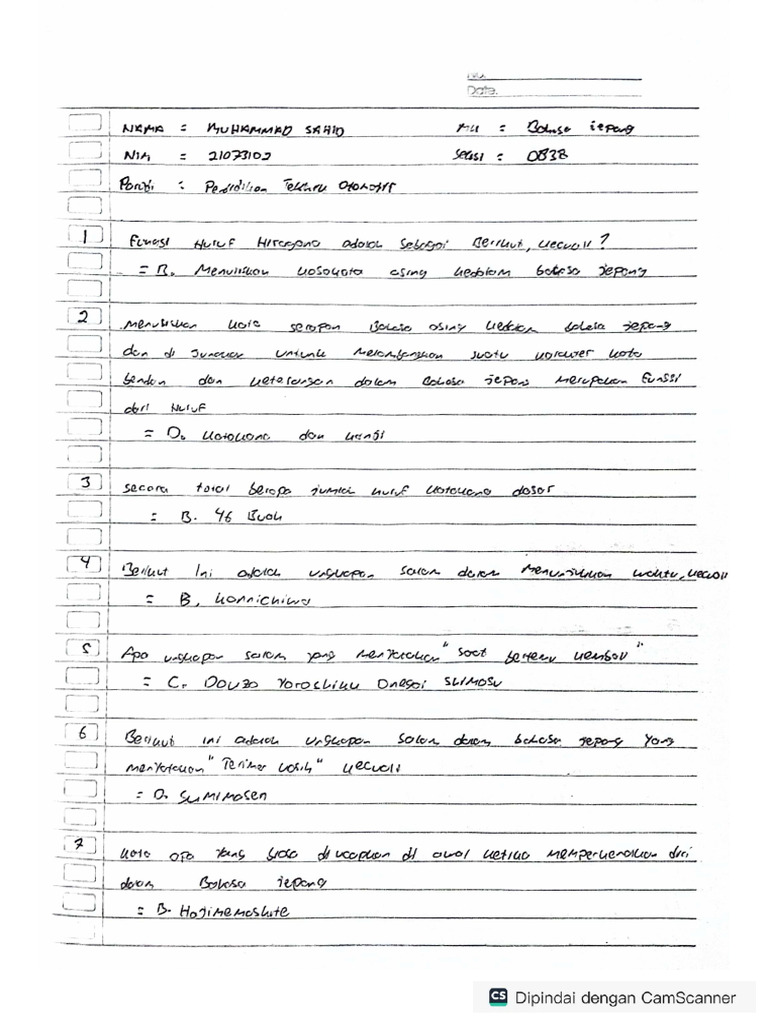 No.
Date.
NAMA = MUHAMMAD SAHID MU = Bahasa Jepang
NIM = 21073102 Seksi : 0838
Porodi : Pendidikan Teknik Otomotif
1 Fungsi Huruf Hiragana adalah Sebagai Berikut, kecuali ?
= B. Menuliskan kosakata asing kedalam bahasa jepang
2 menuliskan kata serapan Bahasa asing kedalam bahasa jepang
dan di gunakan untuk melambangkan suatu karakter kata
bendan dan keterangan dalam Bahasa jepang Merupakan Fungsi
dari Huruf
= D. katakana dan kanji
3 secara total berapa jumlah huruf katakana dasar
= B. 46 Buah
4 Berikut Ini adalah ungkapan salam dalam Menunjukkan waktu, kecuali
= B, konnichiwa
5 Apa ungkapan salam yang menyatakan "saat bertemu kembali"
= C. Douzo Yoroshiku Onegai shimasu
6 Berikut ini adalah ungkapan salam dalam bahasa jepang yang
menyatakan "Terima kasih" kecuali
= D. Sumimasen
7 kata apa yang biasa di ucapkan di awal ketika memperkenalkan diri
dalam Bahasa jepang
= B. Hajimemashite
CS Dipindai dengan CamScanner